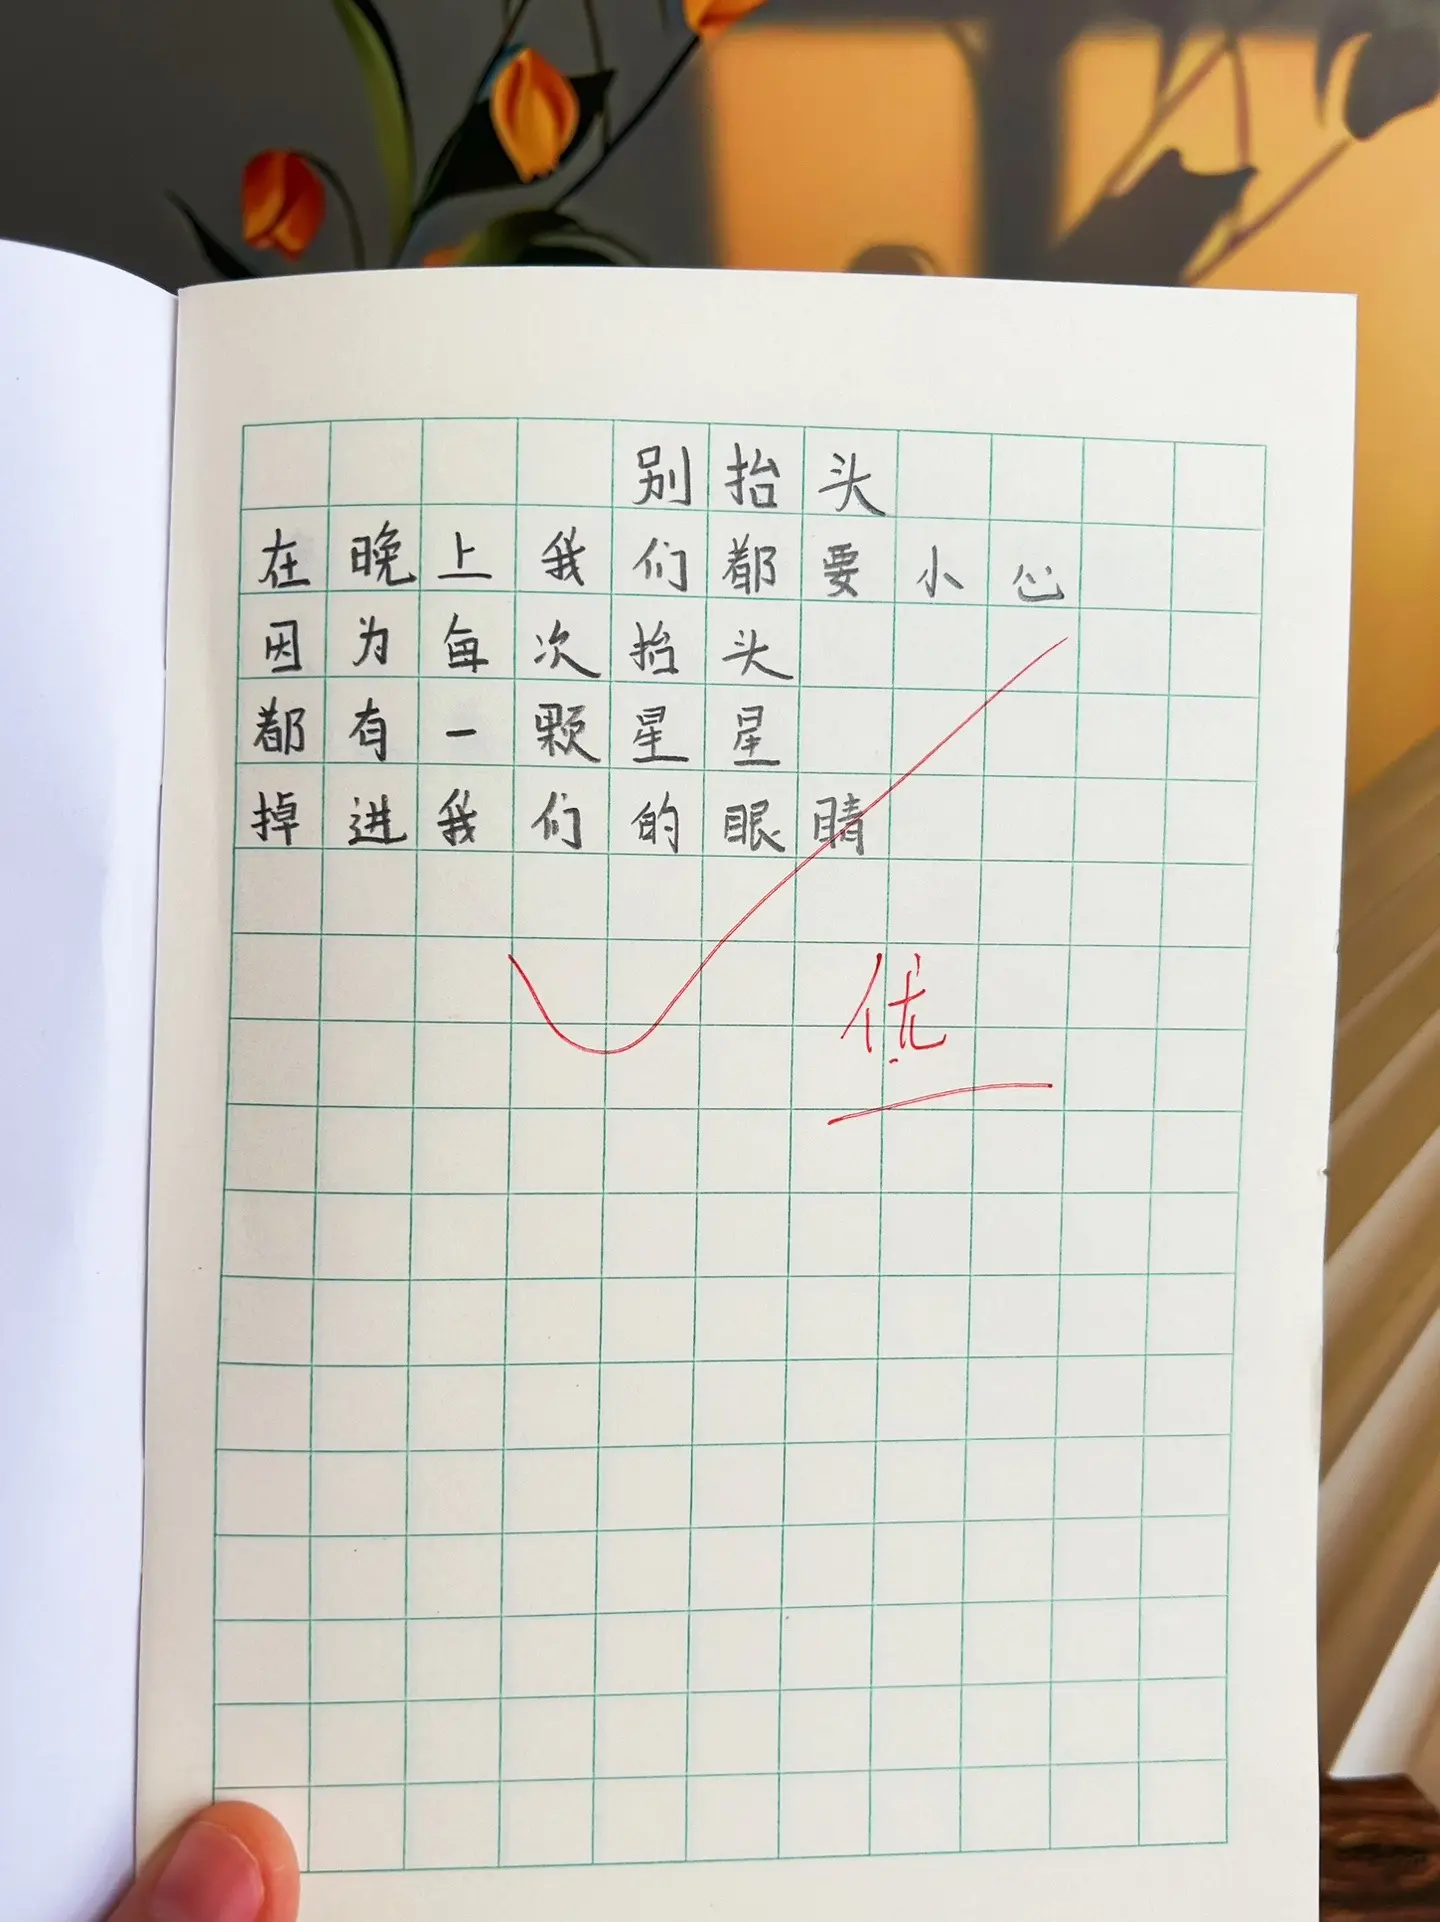 别抬头
在晚上我们都要小心
因为每次抬头
都有一颗星星
掉进我们的眼睛
优